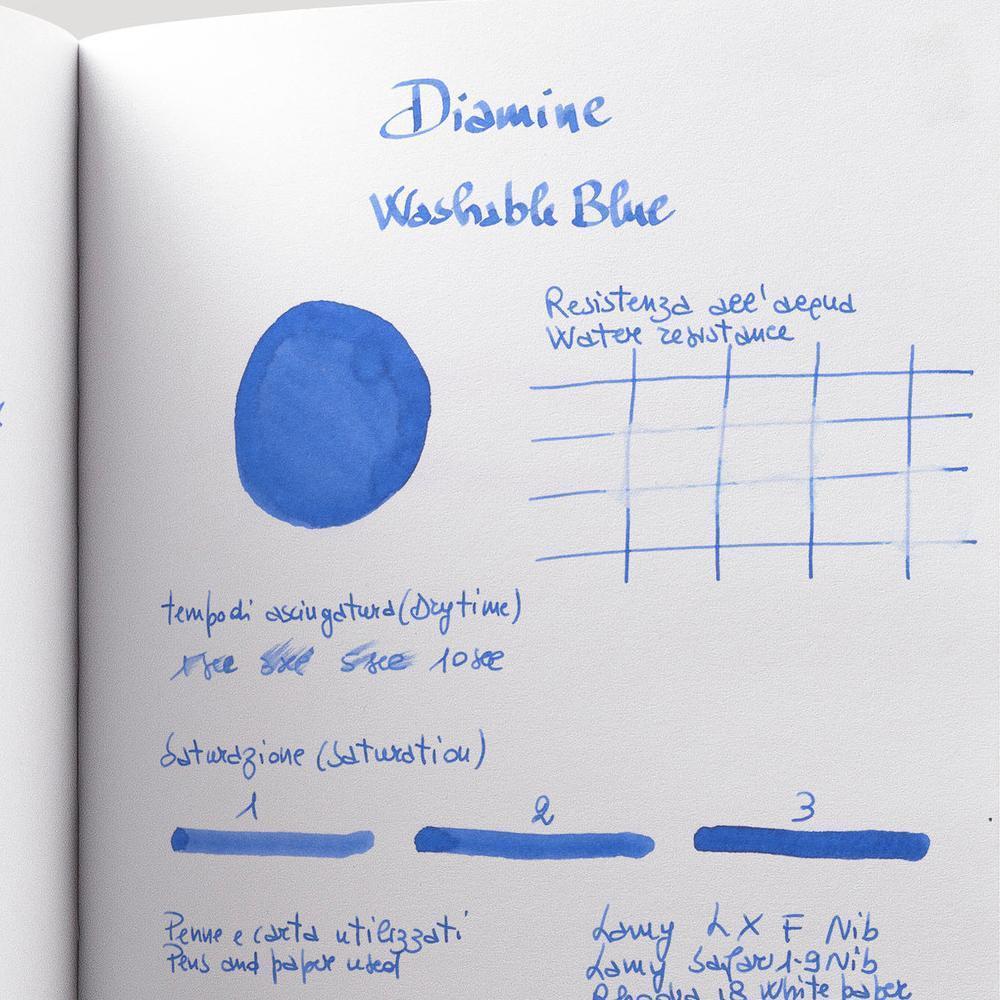 Diamine
Washable Blue
Resistenza all'acqua
Water resistance
tempo di asciugatura (Dry time)
1 sec 5 sec 10 sec
Saturazione (Saturation)
1 2 3
Penne e carta utilizzati
Pens and paper used
Lamy LX F Nib
Lamy Safari 1.9 Nib
Rhodia 18 White paper